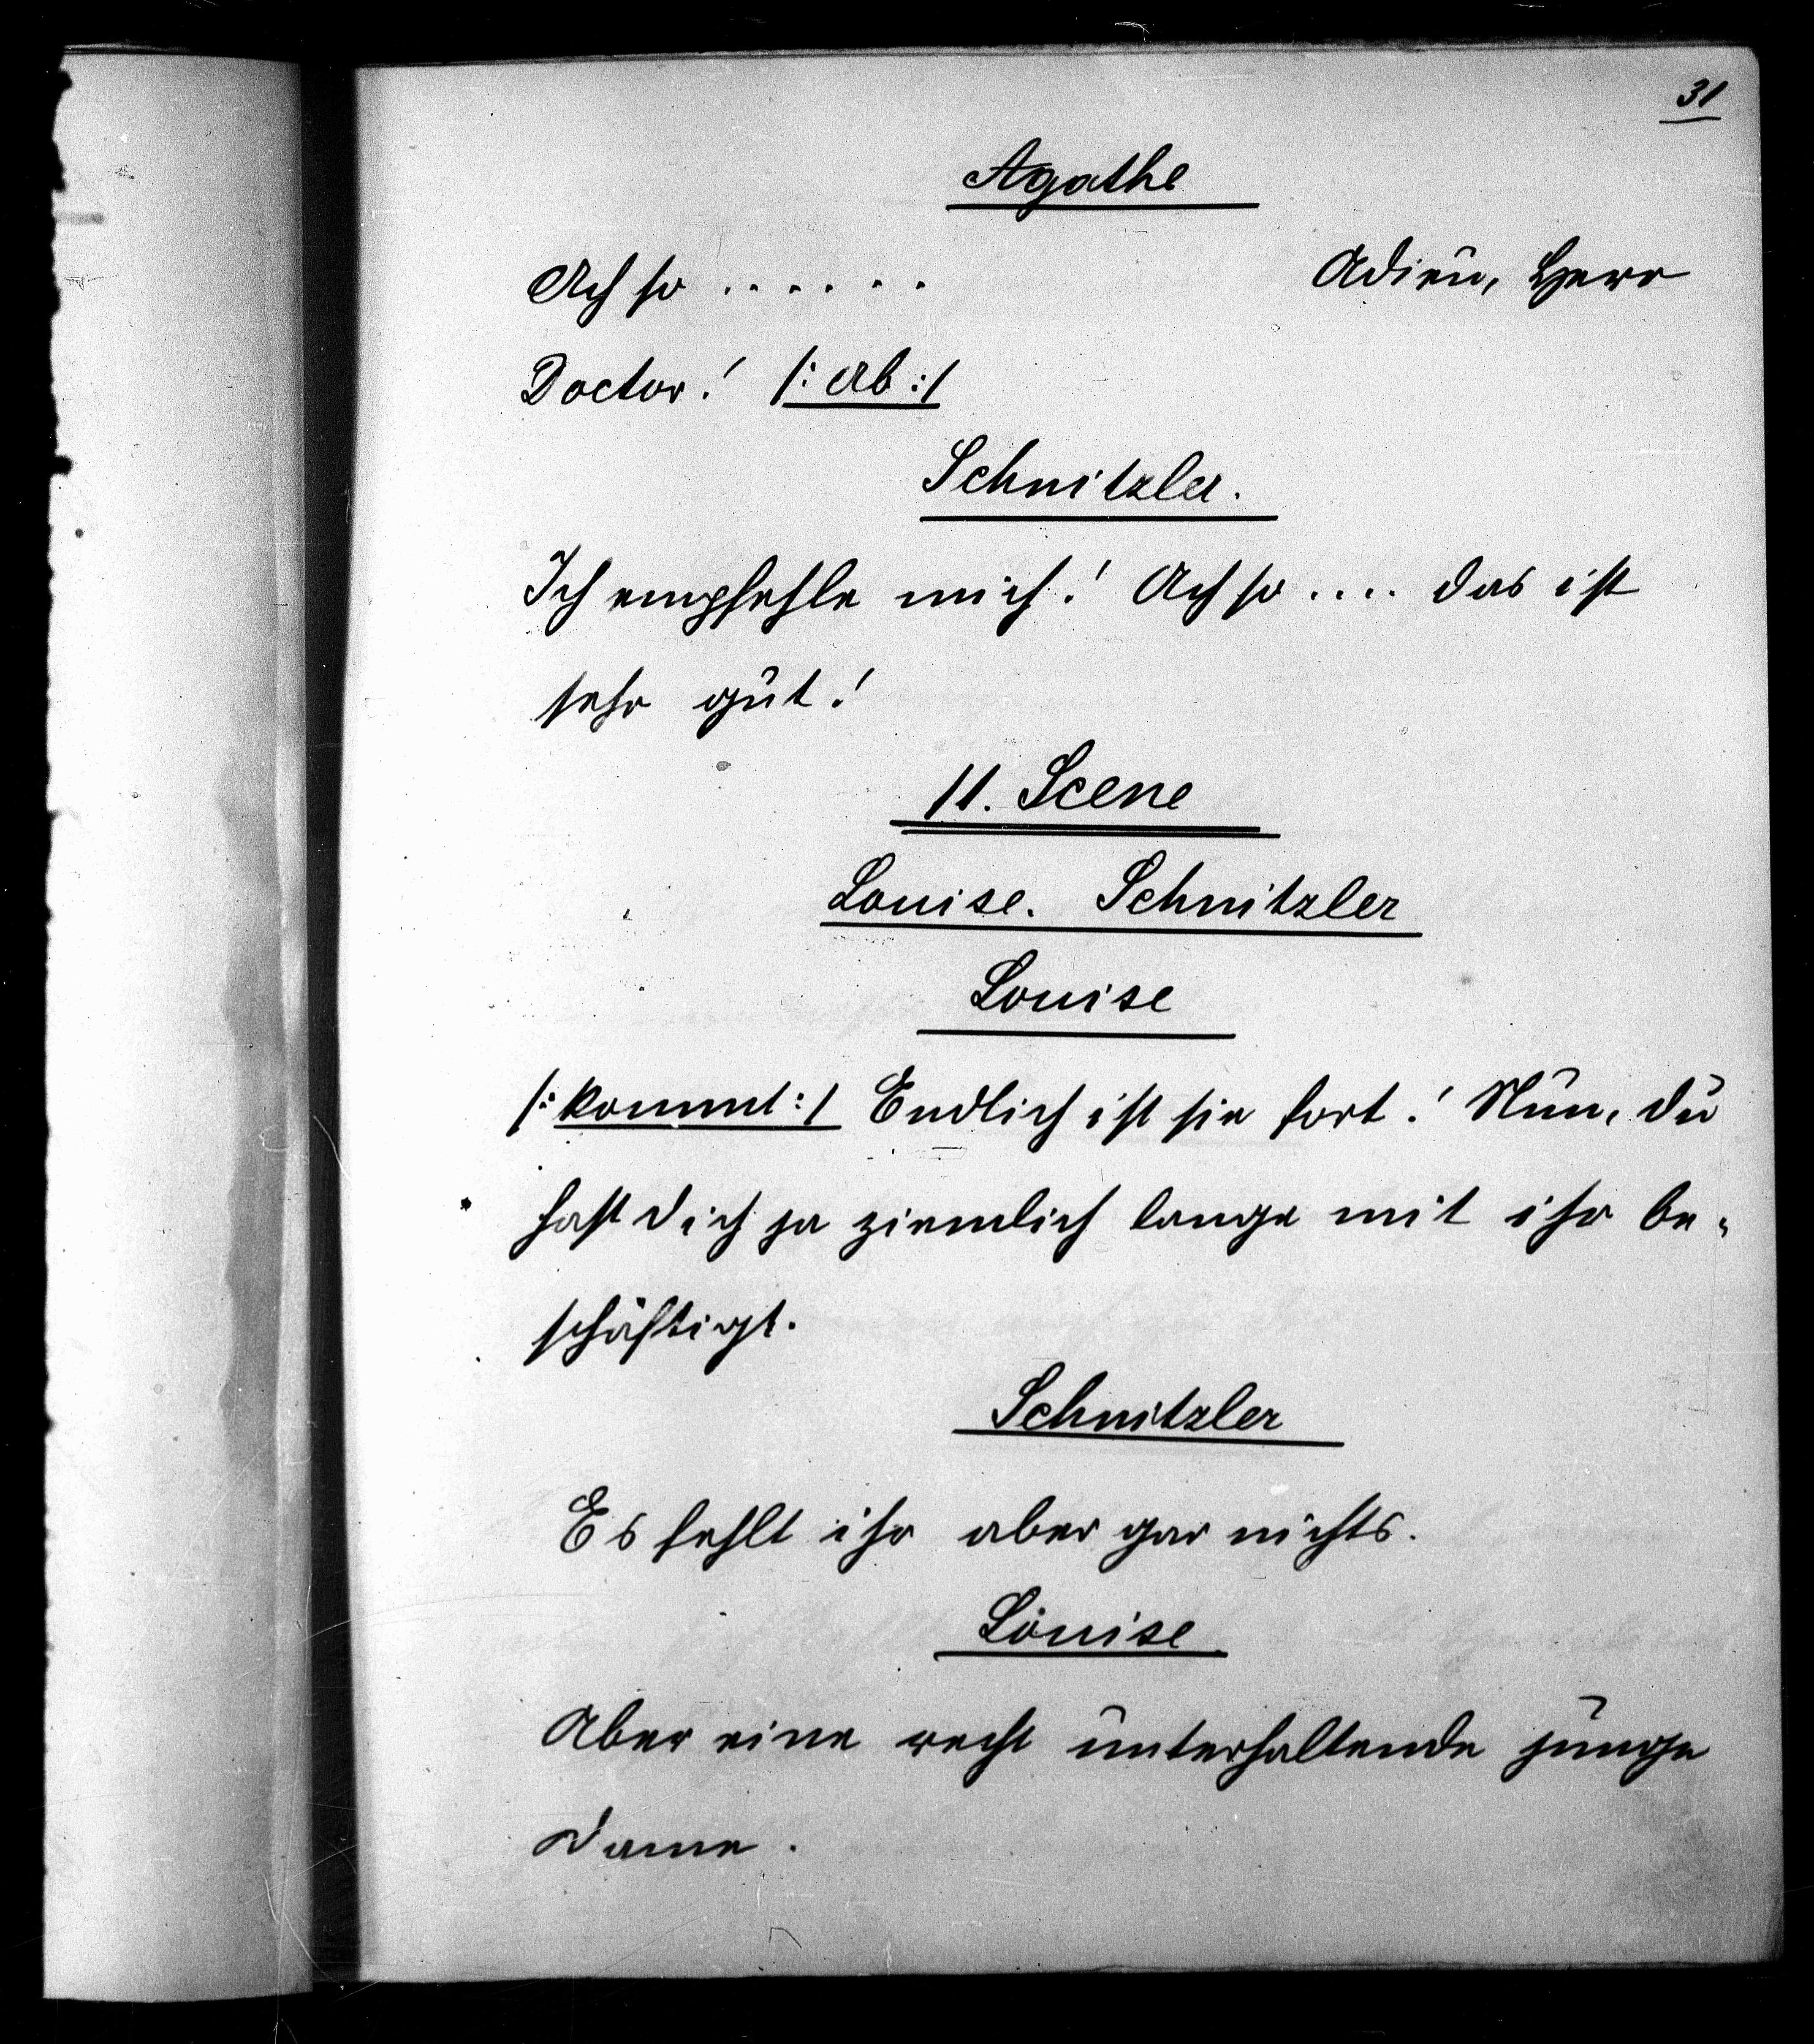 31
Agathe
Ach so ....... Adieu, Herr
Doctor! /: Ab :/
Schnitzler.
Ich empfehle mich! Ach so .... das ist
sehr gut!
11. Scene
Louise. Schnitzler
Louise
/: kommt :/ Endlich ist sie fort! Nun, du
hast dich ja ziemlich lange mit ihr be-
schäftigt.
Schnitzler
Es fehlt ihr aber gar nichts.
Louise
Aber eine recht unterhaltende junge
Dame.